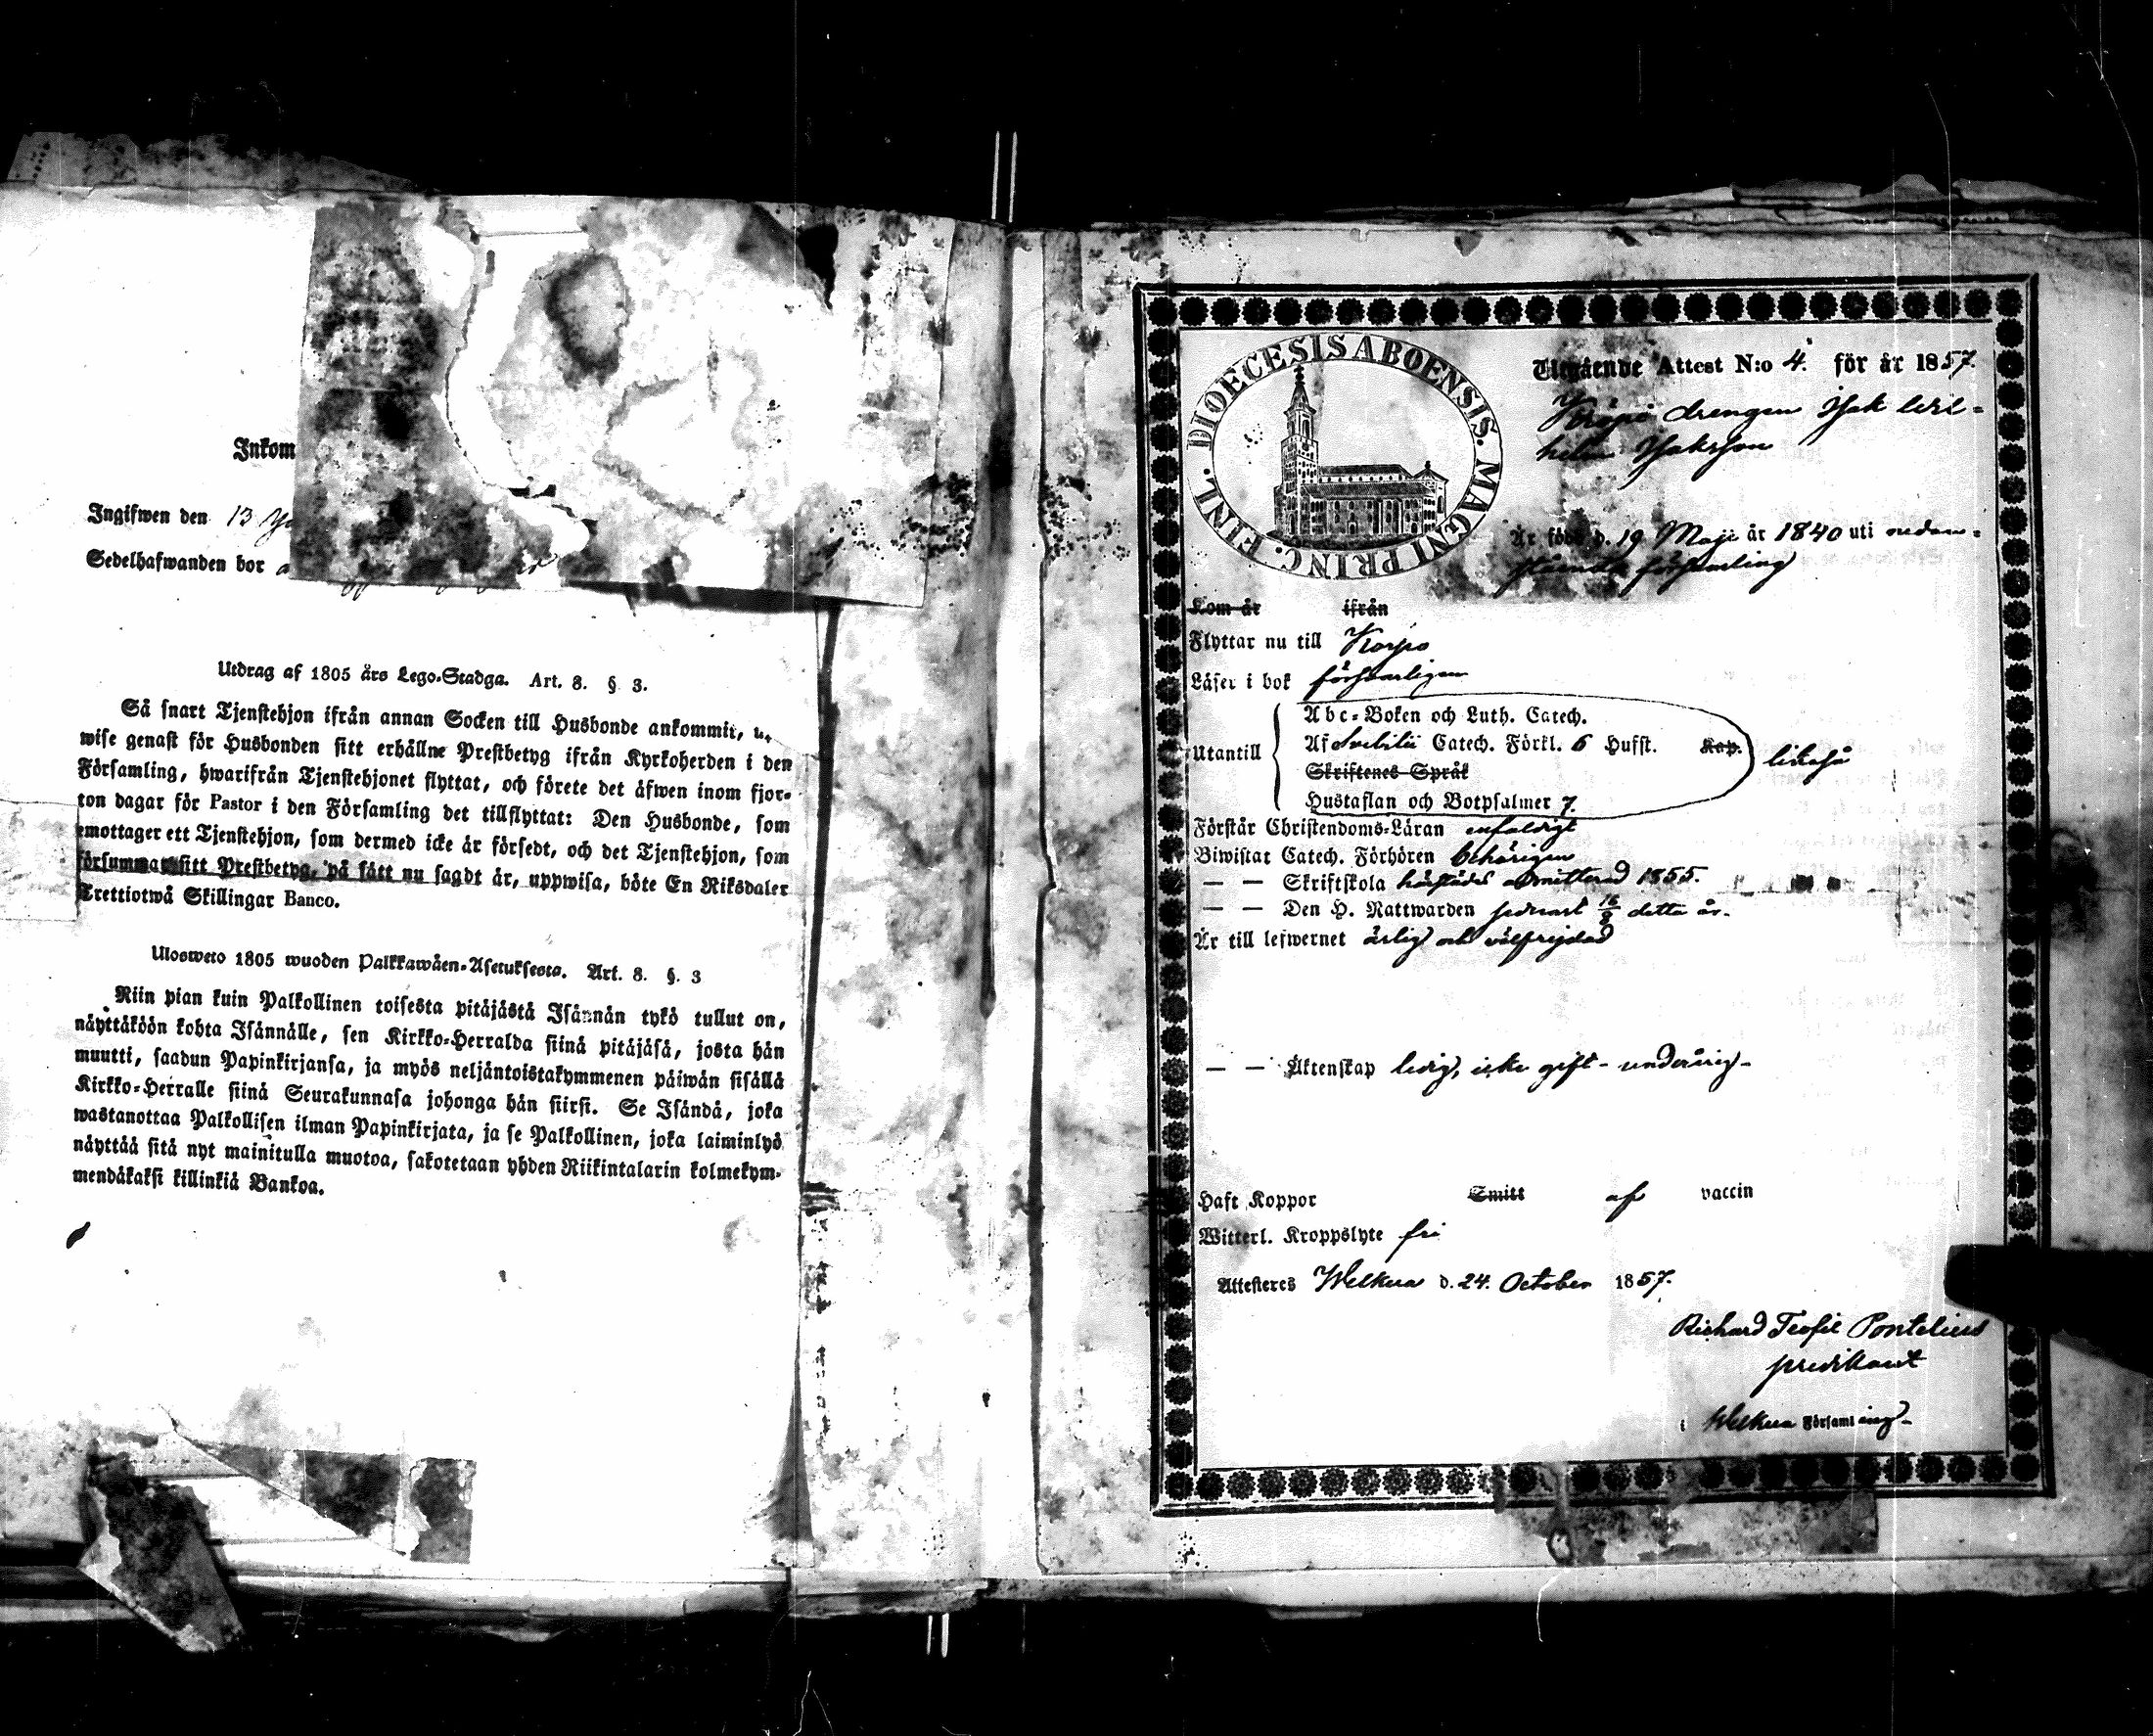 Inkom
Ingifwen den 13
Sedelhafwanden bor
Utdrag af 1805 års Lego-Stadga. Art. 8. § 3.
Så snart Tjenstehjon ifrån annan Socken till Husbonde ankommit,
wise genast för Husbonden sitt erhållne Prestbetyg ifrån Kyrkoherden i den
Församling, hwarifrån Tjenstehjonet flyttat, och förete det äfwen inom fjor-
ton dagar för Pastor i den Församling det tillflyttat: Den Husbonde, som
emottager ett Tjenstehjon, som dermed icke är försedt, och det Tjenstehjon, som
försummar sitt Prestbetyg, på sätt nu sagdt är, uppwisa, böte En Riksdaler
Trettiotwå Skillingar Banco.
Ulosweto 1805 wuoden Palkkawäen-Asetuksesta. Art. 8. §. 3
Niin pian kuin Palkollinen toisesta pitäjästä Isännän tykö tullut on,
näyttäköön kohta Isännälle, sen Kirkko-Herralda siinä pitäjäsä, josta hän
muutti, saadun Papinkirjansa, ja myös neljäntoistakymmenen päiwän sisällä
Kirkko-Herralle siinä Seurakunnasa johonga hän siirsi. Se Isändä, joka
wastanottaa Palkollisen ilman Papinkirjata, ja se Palkollinen, joka laiminlyö
näyttää sitä nyt mainitulla muotoa, sakotetaan yhden Riikintalarin kolmekym-
mendäkaksi killinkiä Bankoa.
DIOECESIS ABOENSIS. MAGNI PRINC. FINL.
Utgående Attest N:o 4. för år 1857.
drengen Isak Wil-
helm Isaksson
Är född d. 19 Maji år 1840 uti nedan-
stående församling
Kom år ifrån
Flyttar nu till Korpo
Läser i bok försvarligen
Abc-Boken och Luth. Catech.
Utantill Af Svebilii Catech. Förkl. 6 Hufst. Kap. likaså
Skriftenes Språk
Hustaflan och Botpsalmer 7
Förstår Christendoms-Läran enfaldigt
Biwistat Catech. Förhören behörigen
— — Skriftskola härstädes admitterad 1855.
— — Den H. Nattwarden senast 16/8 detta år.
Är till lefwernet ärlig och välfrejdad
— — Äktenskap ledig, icke gift - underårig -
Haft Koppor Smitt af vaccin
Witterl. Kroppslyte fri
Attesteres Welkua d. 24. October 1857.
Richard Teofil Pontelius
predikant
i Welkua Församling -